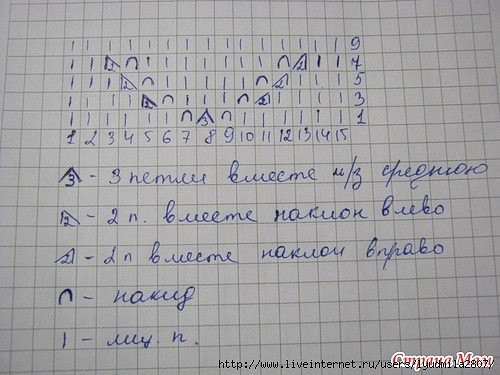 | | | | | | | | | | | | | | | 9
| | 2 ∩ | | | | | | | ∩ 2 | | 7
| | | 2 ∩ | | | | | ∩ 2 | | | 5
| | | | 2 ∩ | | | ∩ 2 | | | | 3
| | | | | | ∩ 3 ∩ | | | | | | 1
1 2 3 4 5 6 7 8 9 10 11 12 13 14 15
3 - 3 петли вместе и/з среднюю
2 - 2 п. вместе наклон влево
2 - 2 п вместе наклон вправо
∩ - накид
| - лиц. п.
Страна Мам
http://www.liveinternet.ru/users/lyudmila2807/